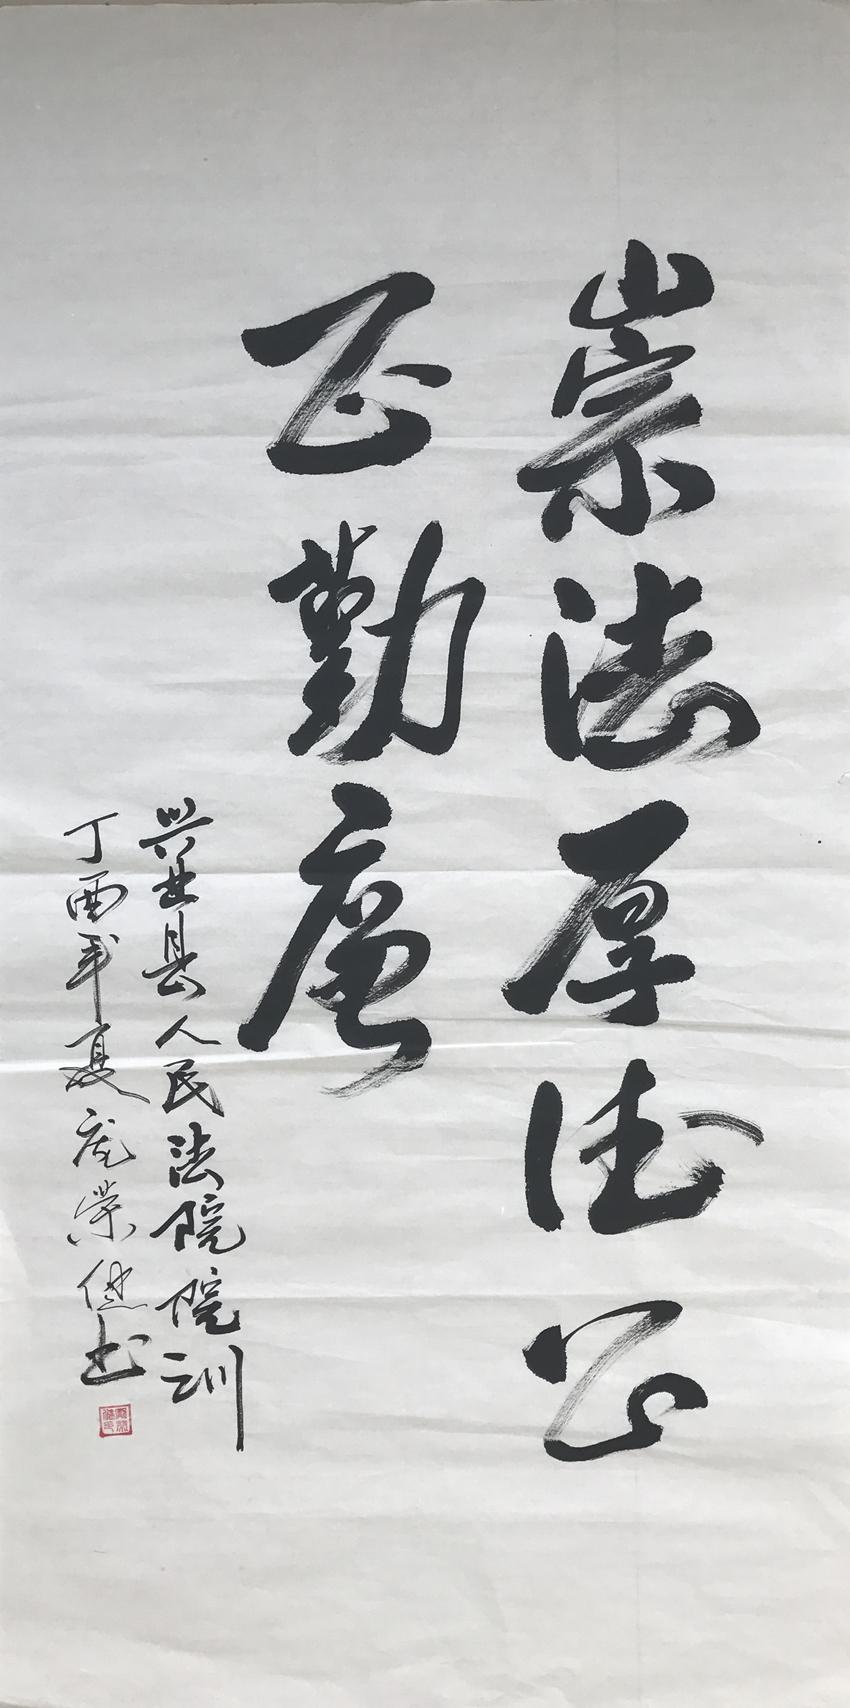 崇法厚德公
正勤廉
兴业县人民法院院训
丁酉年夏庞荣健书